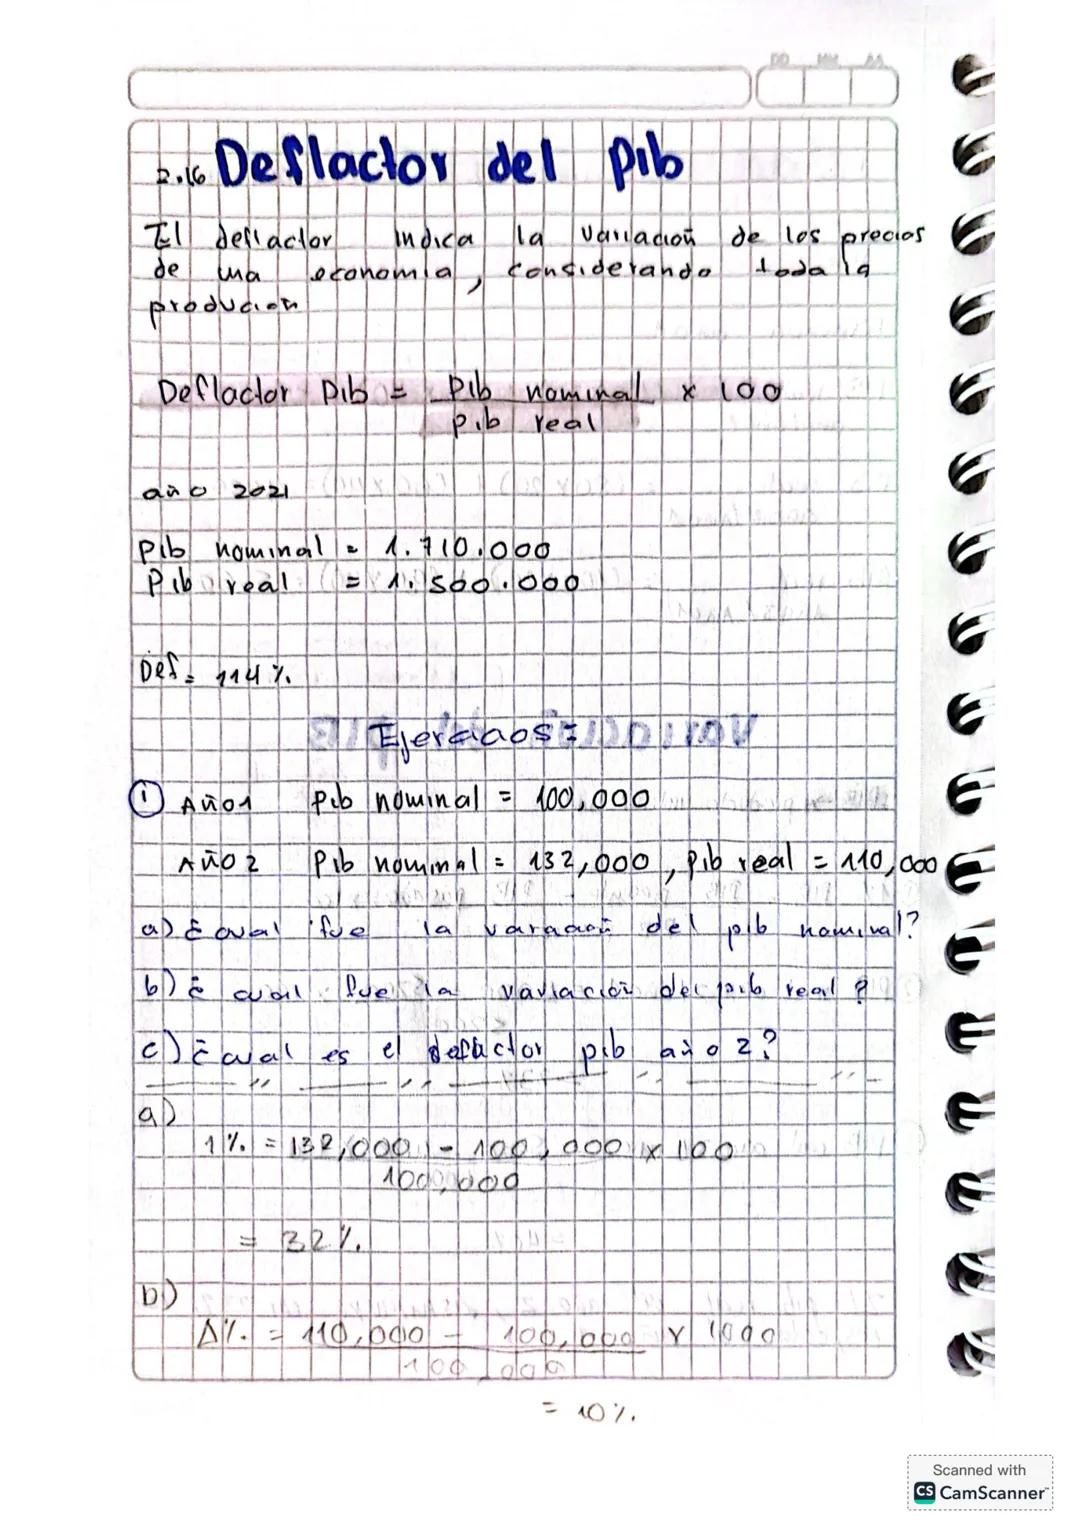 DD MM AA
2.16 Deflactor del pib
El deflactor indica la variación de los precios
de una economia, considerando toda la
producion
Deflactor Pib = Pib nominal x 100
pib real
año 2021
Pib nominal = 1.710.000
Pib real = 1.500.000
Def = 114%
Ejercicios =
① Año1 Pib nominal = 100,000
Año 2 Pib nominal = 132,000, Pib real = 110,000
a) ¿ cual fue la varación del pib nominal?
b) ¿ cual fue la variación del pib real?
c) ¿ cual es el defactor pib año 2?
a)
1% = 132,000 - 100,000 x 100
100,000
= 32%
b)
Δ% = 110,000 - 100,000 x 1000
100,000
= 10%
Scanned with
CS CamScanner